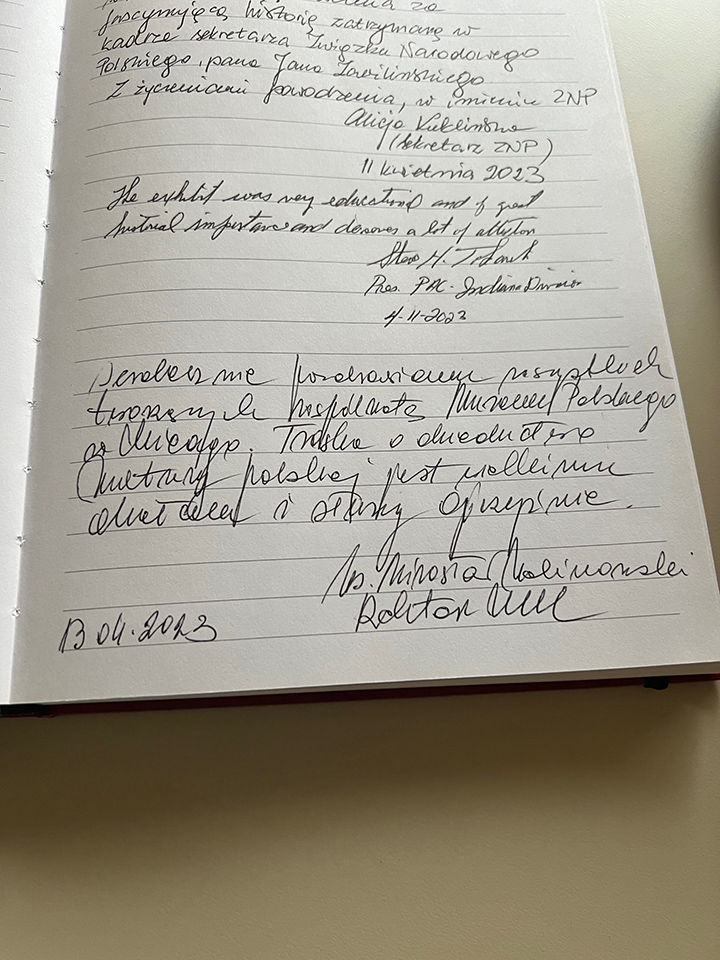 fascynującą historię zatrzymaną w
kadrze sekretarza Związku Narodowego
Polskiego, pana Jana
Z życzeniami powodzenia, w imieniu ZNP
Alicja Kuklińska
(sekretarz ZNP)
11 kwietnia 2023
The exhibit was very educational and of great
importance and deserves a lot of
Steve H.
Pres. PAC - Indiana Division
4-11-2023
Serdecznie pozdrawiam wszystkich
tworzących wspólnotę Muzeum Polskiego
w Chicago. Troska o dziedzictwo
kultury polskiej jest wielkim
i służy Ojczyźnie.
ks. Mirosław Kalinowski
Rektor KUL
13.04.2023